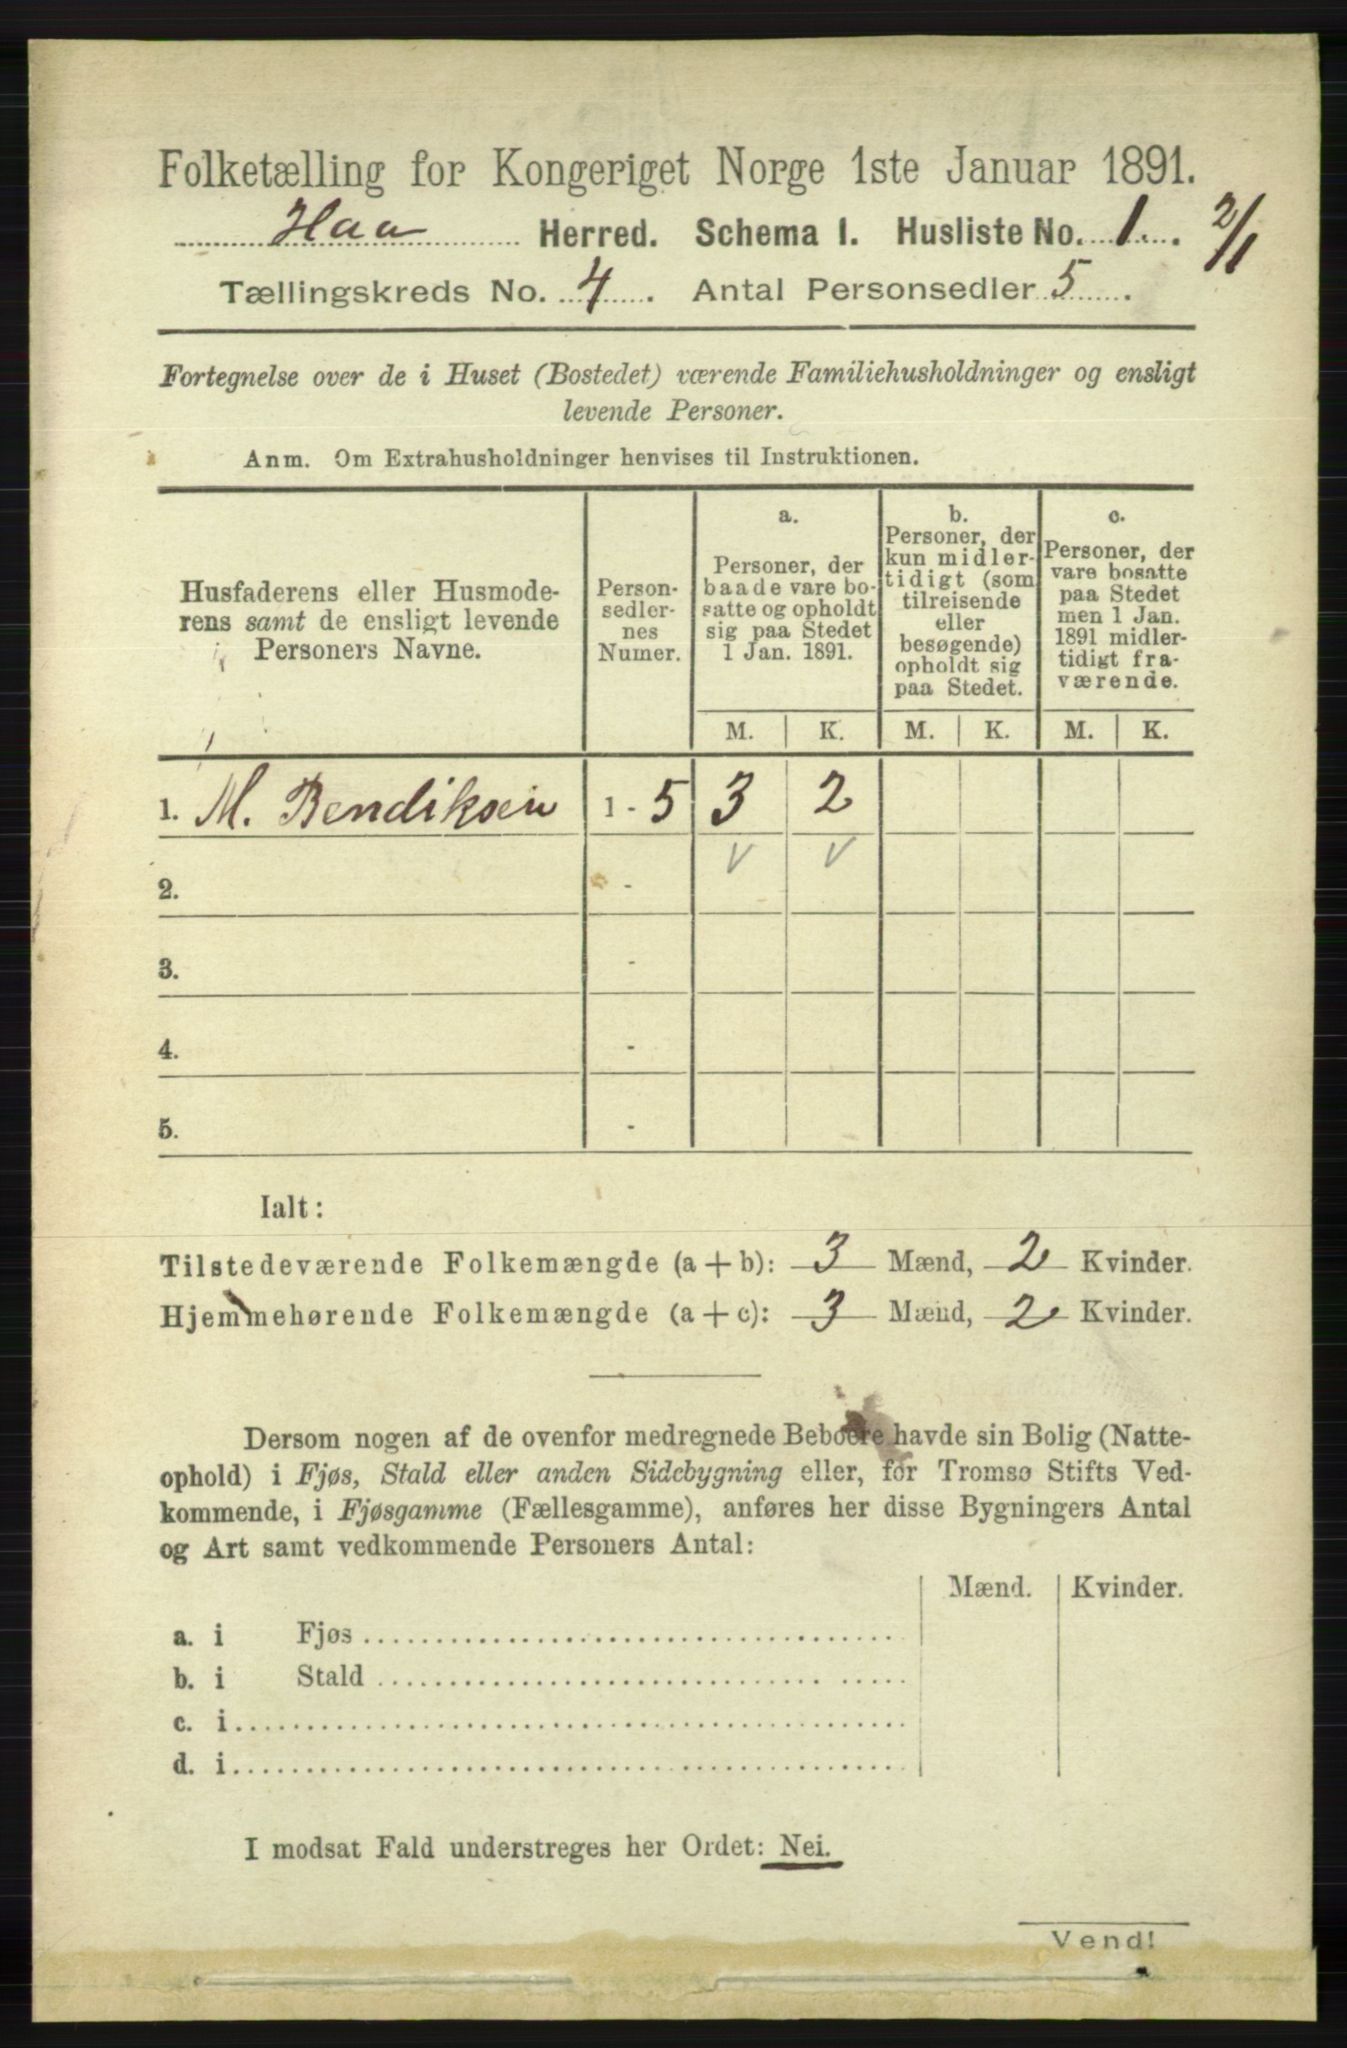 Folketælling for Kongeriget Norge 1ste Januar 1891.
Haa Herred. Schema I. Husliste No. 1. 2/1
Tællingskreds No. 4. Antal Personsedler 5.
Fortegnelse over de i Huset (Bostedet) værende Familiehusholdninger og ensligt
levende Personer.
Anm. Om Extrahusholdninger henvises til Instruktionen.
Husfaderens eller Husmode-
rens samt de ensligt levende
Personers Navne.
Person-
sedler-
nes
Numer.
a.
Personer, der
baade vare bo-
satte og opholdt
sig paa Stedet
1 Jan. 1891.
b.
Personer, der
kun midler-
tidigt (som
tilreisende
eller
besøgende)
opholdt sig
paa Stedet.
c.
Personer, der
vare bosatte
paa Stedet
men 1 Jan.
1891 midler-
tidigt fra-
værende.
M. K. M. K. M. K.
1. M. Bendiksen 1 - 5 3 2
2. - V V
3. -
4. -
5. -
Ialt:
Tilstedeværende Folkemængde (a + b): 3 Mænd, 2 Kvinder.
Hjemmehørende Folkemængde (a + c): 3 Mænd, 2 Kvinder.
Dersom nogen af de ovenfor medregnede Beboere havde sin Bolig (Natte-
ophold) i Fjøs, Stald eller anden Sidebygning eller, for Tromsø Stifts Ved-
kommende, i Fjøsgamme (Fællesgamme), anføres her disse Bygningers Antal
og Art samt vedkommende Personers Antal:
Mænd. Kvinder.
a. i Fjøs
b. i Stald
c. i
d. i
I modsat Fald understreges her Ordet: Nei.
Vend!